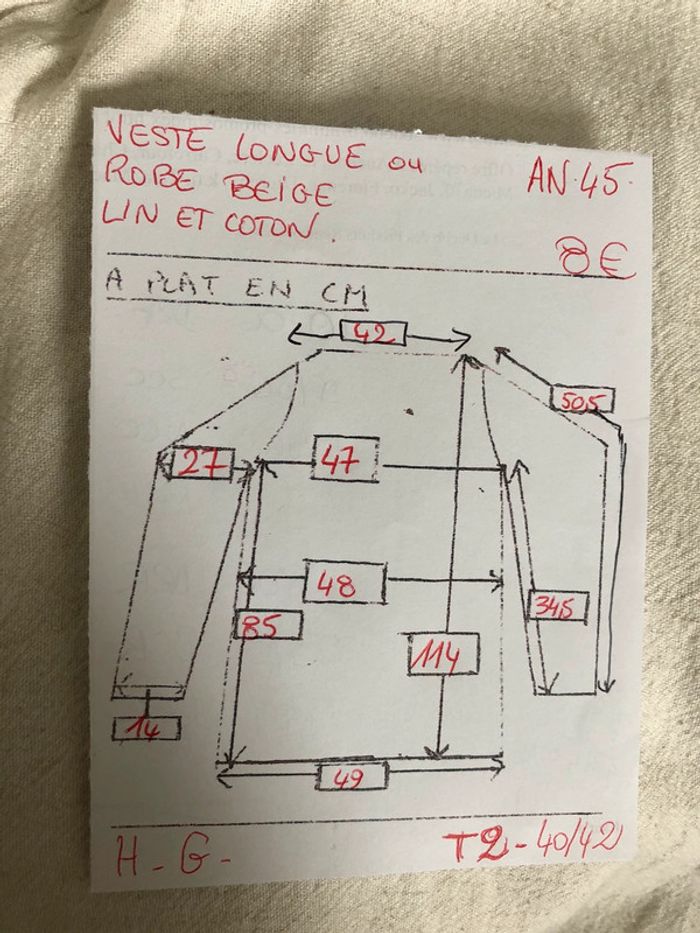 VESTE LONGUE OU
ROBE BEIGE
LIN ET COTON.
AN.45.
8€
A PLAT EN CM
42
50,5
27
47
48
34,5
85
114
14
49
H_G_
T2-40/42